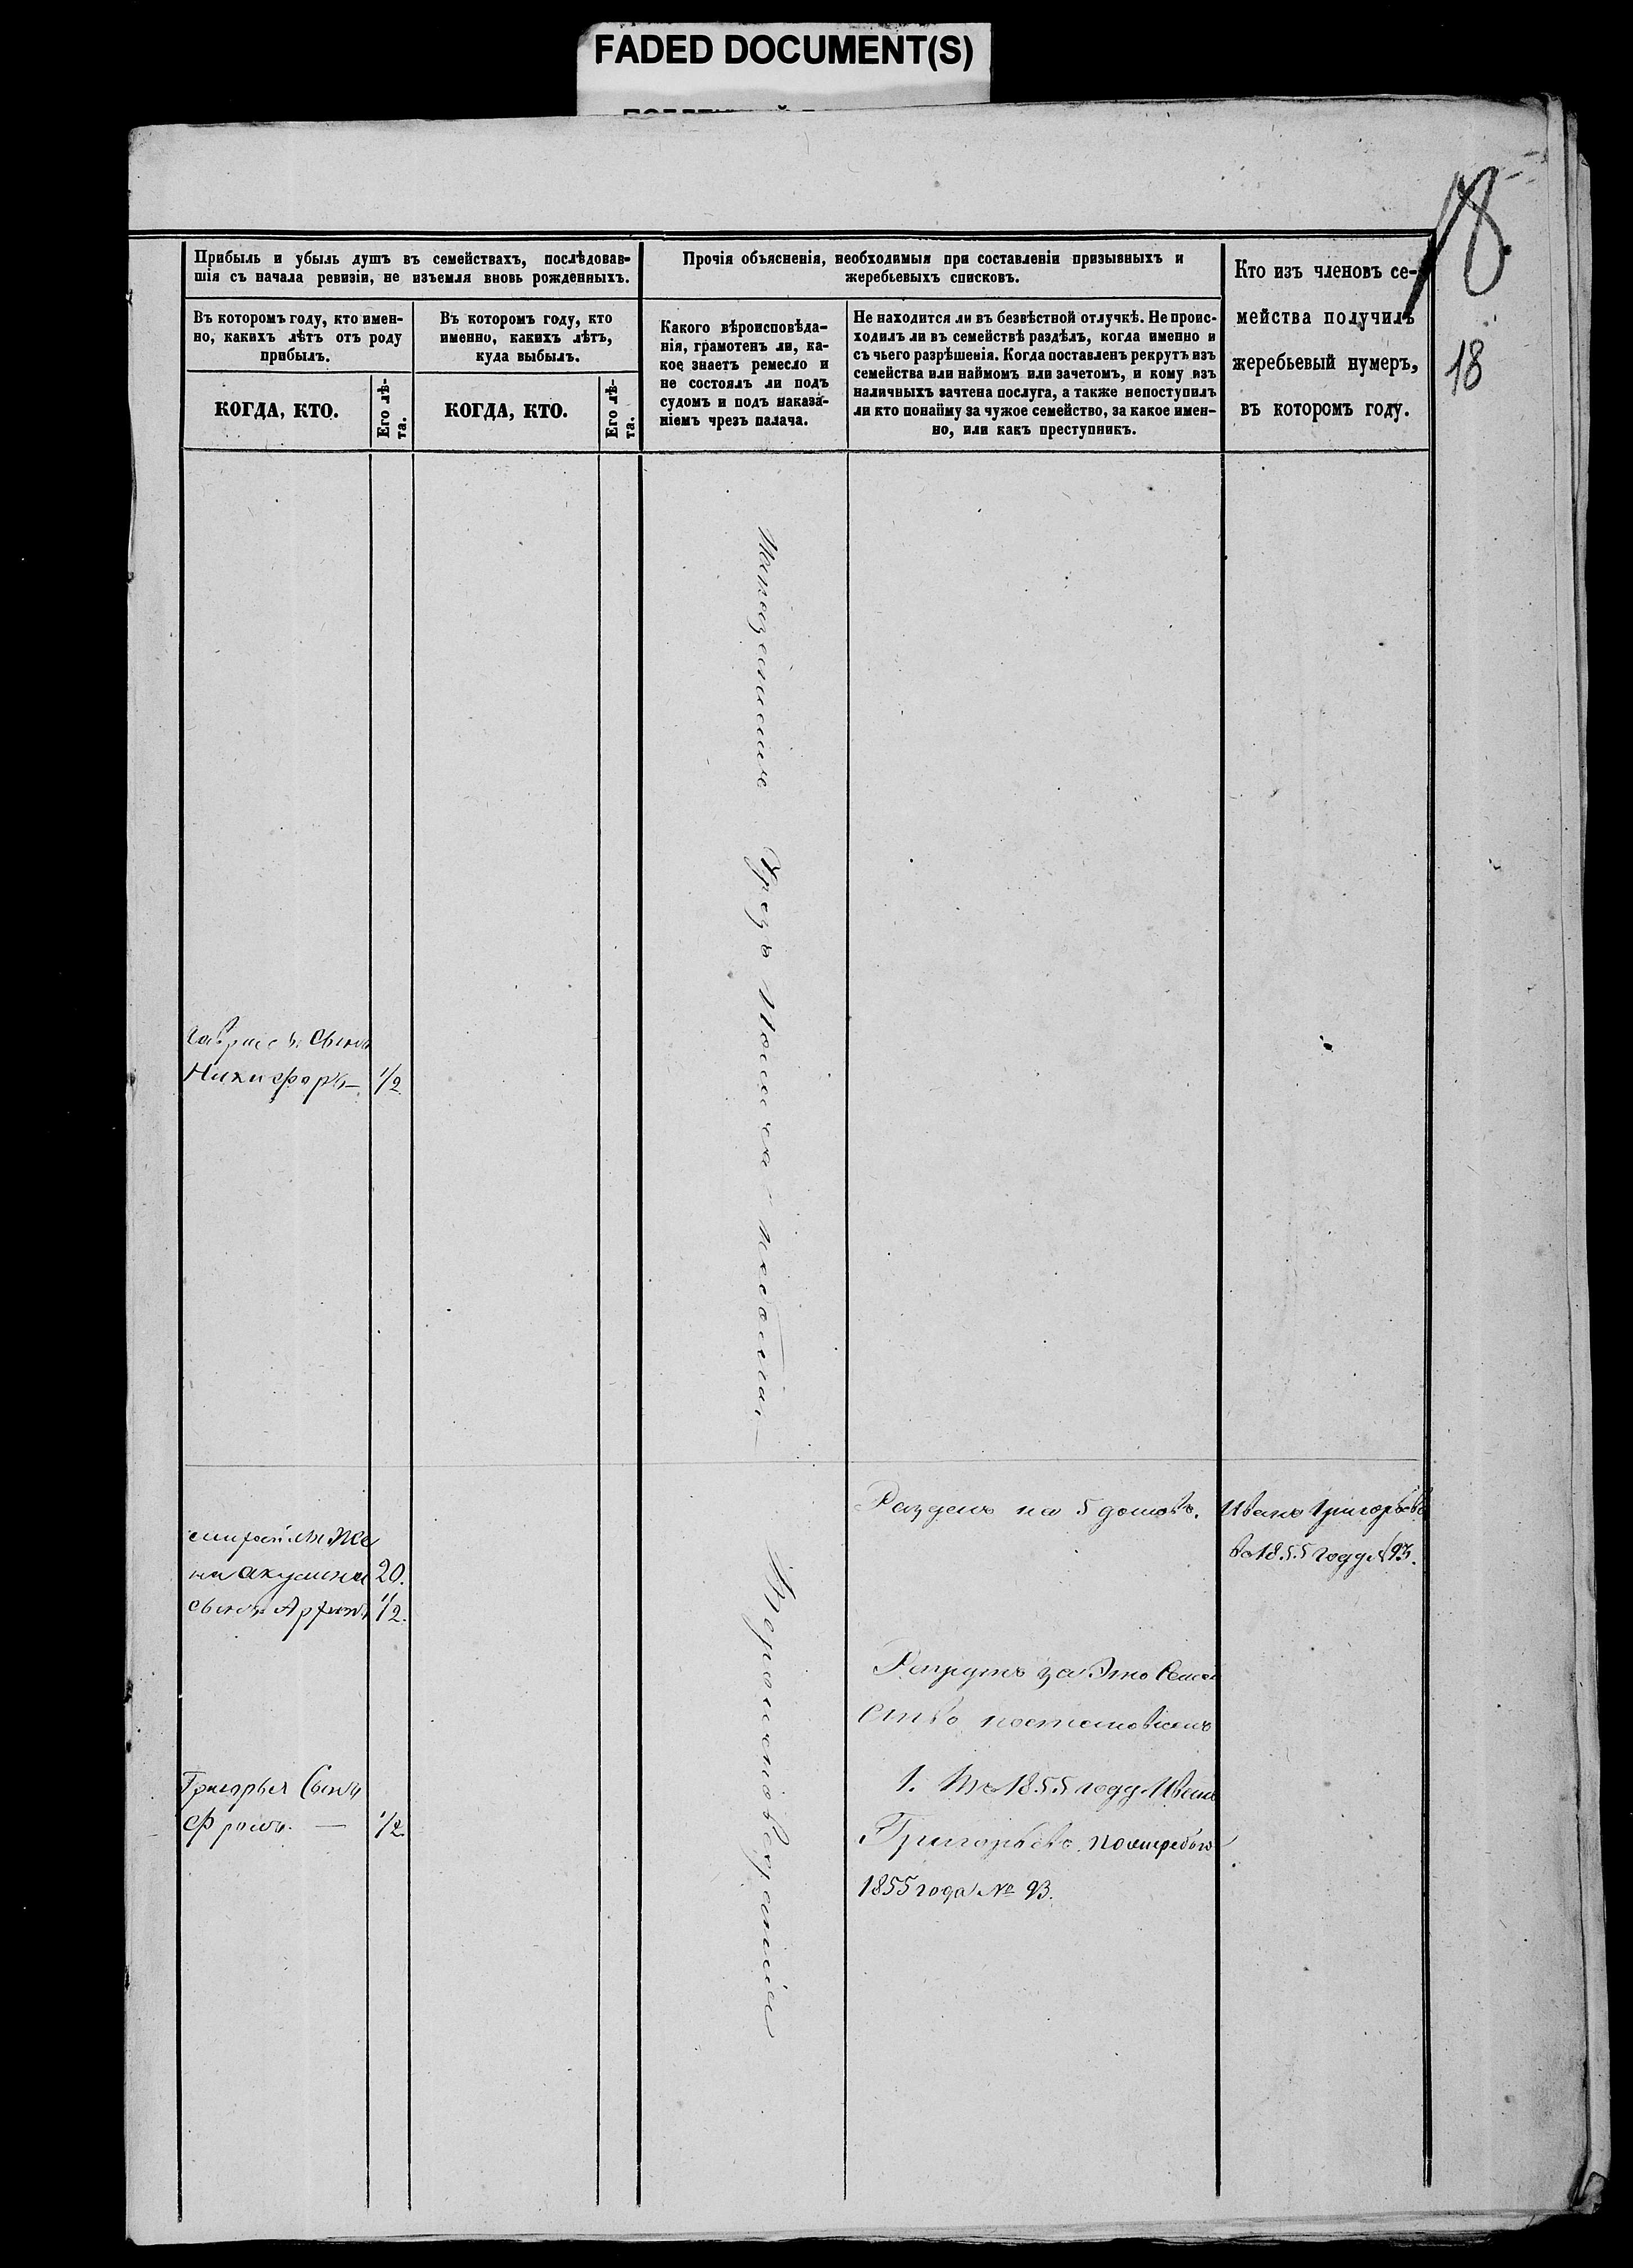 FADED DOCUMENT(S)
18
18
Прибыль и убыль душъ въ семействахъ, послѣдовав-
шія съ начала ревизіи, не изъемля вновь рожденныхъ.
Въ которомъ году, кто имен-
но, какихъ лѣтъ отъ роду
прибылъ.
КОГДА, КТО.
Его лѣ-
та.
Въ которомъ году, кто
именно, какихъ лѣтъ,
куда выбылъ.
КОГДА, КТО.
Его лѣ-
та.
Прочія объясненія, необходимыя при составленіи призывныхъ и
жеребьевыхъ списковъ.
Какого вѣроисповѣда-
нія, грамотенъ ли, ка-
кое знаетъ ремесло и
не состоялъ ли подъ
судомъ и подъ наказа-
ніемъ чрезъ палача.
Не находится ли въ безвѣстной отлучкѣ. Не проис-
ходилъ ли въ семействѣ раздѣлъ, когда именно и
съ чьего разрѣшенія. Когда поставленъ рекрутъ изъ
семейства или наймомъ или зачетомъ, и кому изъ
наличныхъ зачтена послуга, а также непоступилъ
ли кто понайму за чужое семейство, за какое имен-
но, или какъ преступникъ.
Кто изъ членовъ се-
мейства получилъ
жеребьевый нумеръ,
въ которомъ году.
Гаврилъ Сынъ
Никифоръ — 1/2
Жe
на Акулина 20.
Сынъ 1/2.
Григорья Сынъ
Фролъ. — 1/2
Наказаніемъ Чрезъ
Вероисповеданія
Разделъ на 5 домовъ.
Рекрутъ за Это Семей
Ство поставленъ
1. Въ 1855 году Иванъ
Григорьевъ пожеребью
1855 года № 93.
Иванъ Григорьевъ
въ 1855 году № 93.